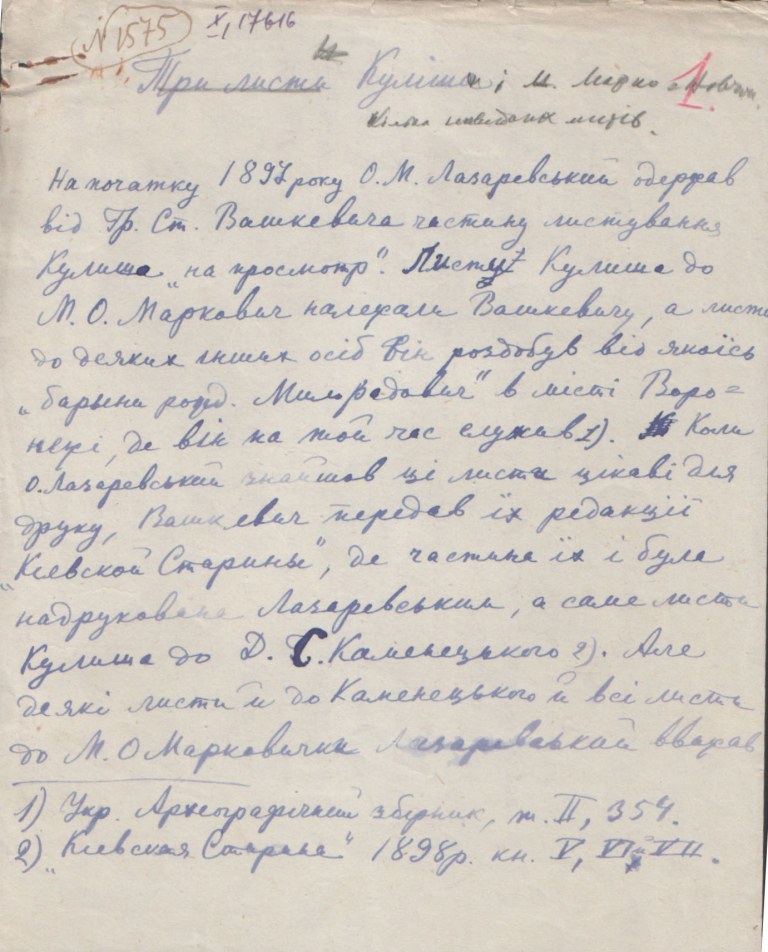 N 1575
X, 17616
Три листи Куліша і М. Марко Вовчок
1.
Кілька невиданих листів.
На початку 1897 року О. М. Лазаревський одержав
від Гр. Ст. Вашкевича частину листування
Кулиша „на просмотр“. Листи Кулиша до
М. О. Маркович належали Вашкевичу, а листи
до деяких інших осіб він роздобув від якоїсь
„барыни рожд. Милорадович“ в місті Воро=
нежі, де він на той час служив 1). Коли
О. Лазаревський знайшов ці листи цікаві для
друку, Вашкевич передав їх редакції
„Кіевской Старины“, де частина їх і була
надрукована Лазаревським, а саме листи
Кулиша до Д. С. Каменецького 2). Але
деякі листи й до Каменецького й всі листи
до М. О Марковички Лазаревський вважав
1) Укр. Археографічний збірник, т. II, 354.
2) „Кіевская Старина“ 1898р. кн. V, VI, VII.